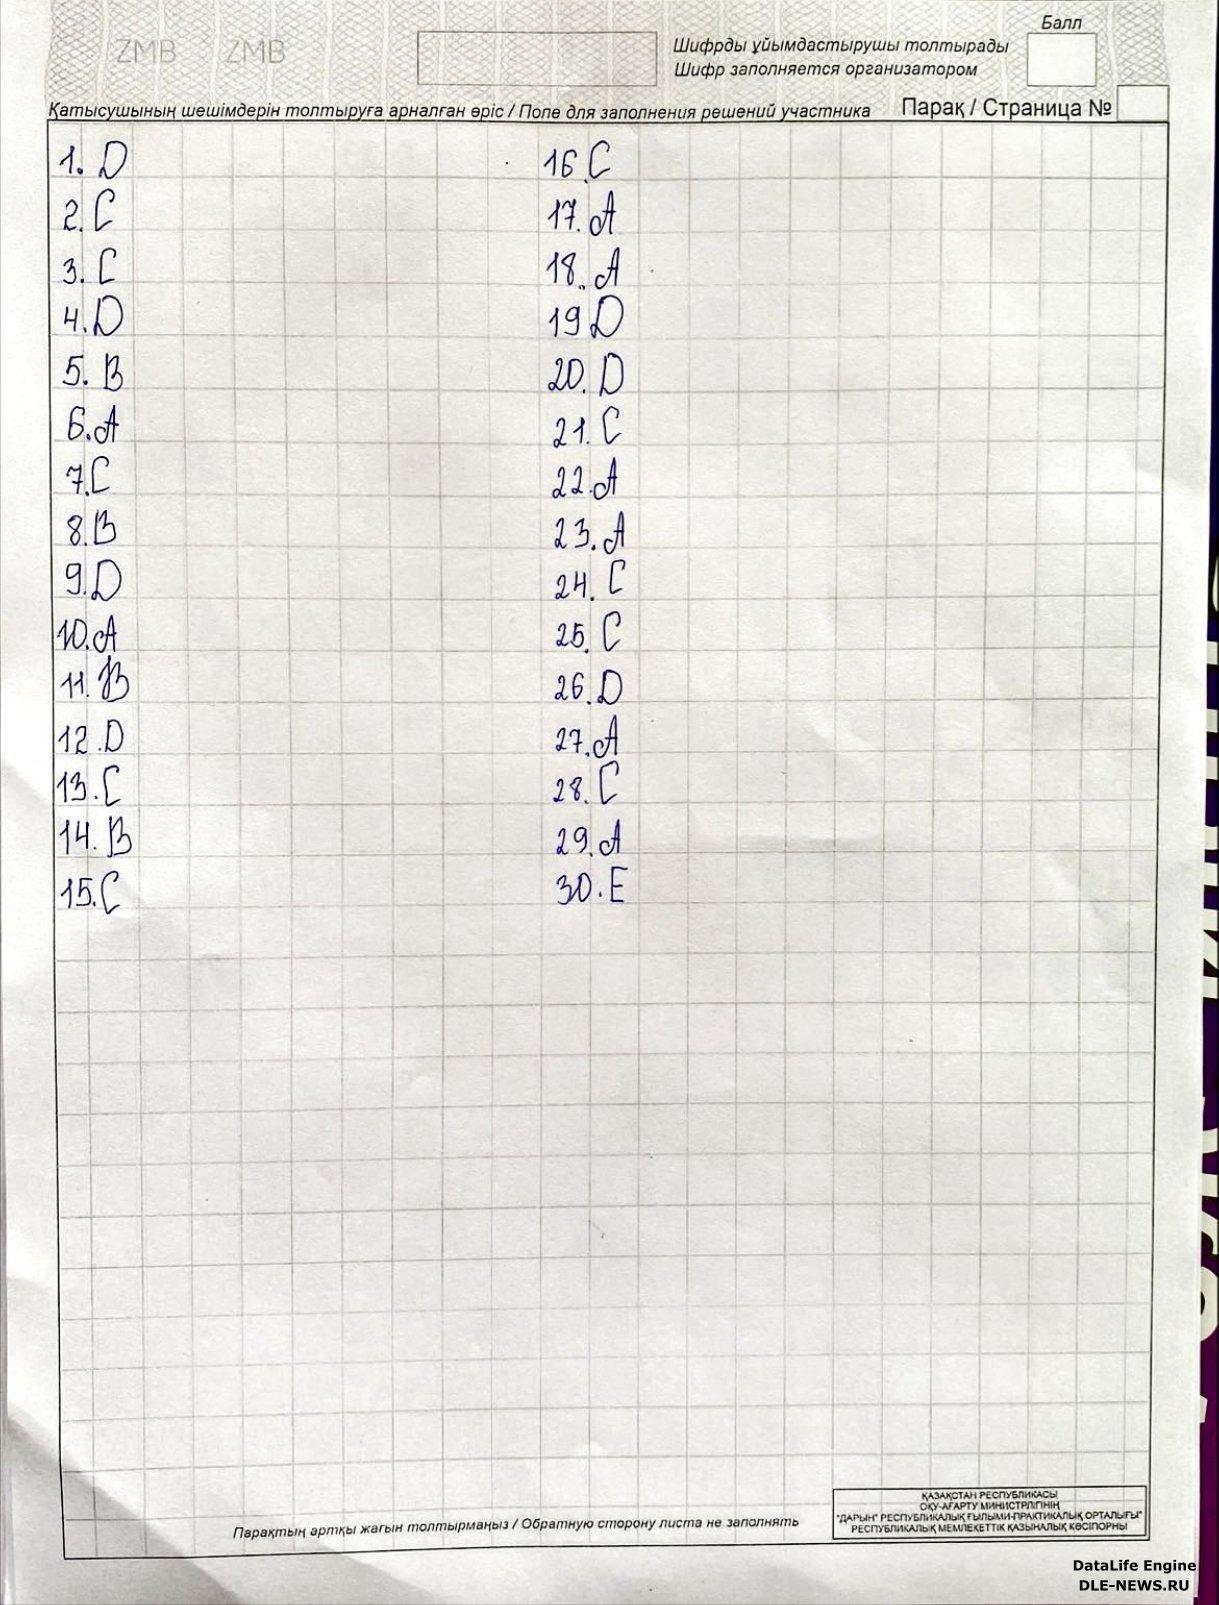 ZMB ZMB
Балл
Шифрды ұйымдастырушы толтырады
Шифр заполняется организатором
Қатысушының шешімдерін толтыруға арналған өріс / Поле для заполнения решений участника
Парақ / Страница №
1. D
2. C
3. C
4. D
5. B
6. A
7. C
8. B
9. D
10. A
11. B
12. D
13. C
14. B
15. C
16. C
17. A
18. A
19 D
20. D
21. C
22. A
23. A
24. C
25. C
26. D
27. A
28. C
29. A
30. E
Парақтың артқы жағын толтырмаңыз / Обратную сторону листа не заполнять
ҚАЗАҚСТАН РЕСПУБЛИКАСЫ
ОҚУ-АҒАРТУ МИНИСТРЛІГІНІҢ
"ДАРЫН" РЕСПУБЛИКАЛЫҚ ҒЫЛЫМИ-ПРАКТИКАЛЫҚ ОРТАЛЫҒЫ"
РЕСПУБЛИКАЛЫҚ МЕМЛЕКЕТТІК ҚАЗЫНАЛЫҚ КӘСІПОРНЫ
DataLife Engine
DLE-NEWS.RU